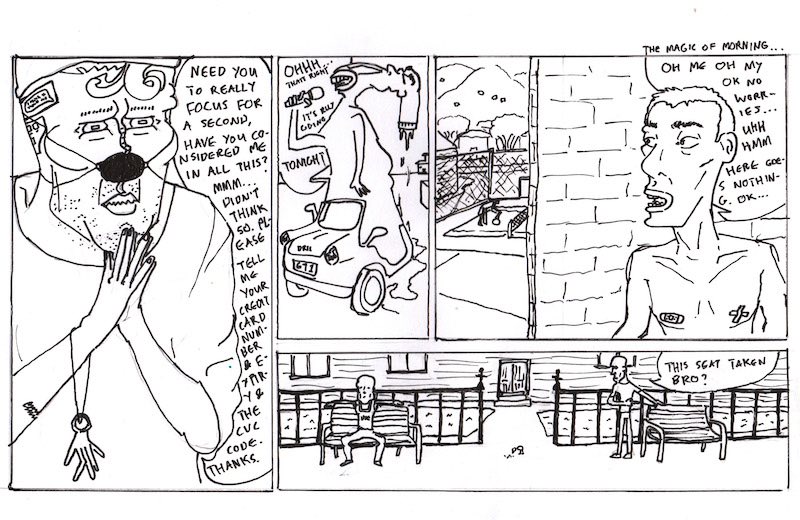 NEED YOU
TO REALLY
FOCUS FOR
A SECOND,
HAVE YOU CO-
NSIDERED ME
IN ALL THIS?
MMM...
DIDN'T
THINK
SO. PL-
EASE
TELL
ME
YOUR
CREDIT
CARD
NUM-
BER
& E-
XPIR-
Y &
THE
CVC
CODE.
THANKS.
OHHH
THATS RIGHT..
IT'S RLLY
GOING
TONIGHT
DRIL
GTI
THE MAGIC OF MORNING...
OH ME OH MY
OK NO
WORR-
IES...
UHH
HMM
HERE GOE-
S NOTHIN-
G. OK...
THIS SEAT TAKEN
BRO?